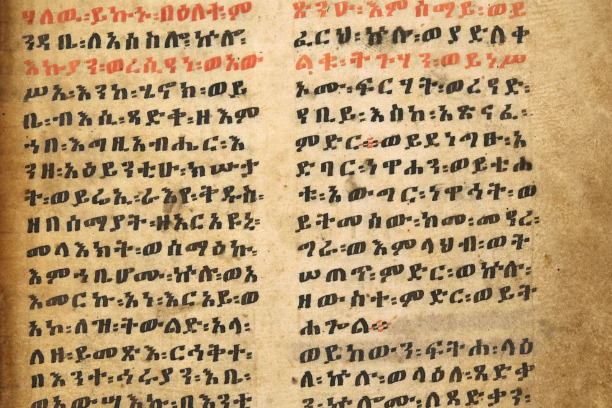 ሃለዉ፡ይኩኑ፡በዕለተ፡ም
ንዳቤ፡ለአሰስሎ፡ኵሎ፡
እኩያን፡ወረሲዓነ፡ወአው
ሥአ፡እንከ፡ሄኖክ፡ወይ
ቤ፡ብእሲ፡ጻድቅ፡ዘእም
ኀበ፡እግዚአብሔር፡እ
ንዘ፡አዕይንቲሁ፡ክሡታ
ት፡ወይሬኢ፡ራእየ፡ቅዱሰ፡
ዘበሰማያት፡ዘአርአዩኒ፡
መላእክት፡ወሰማዕኩ፡
እምኀቤሆሙ፡ኵሎ፡ወአ
እመርኩ፡አነ፡እርአይ፡ወ
አኮ፡ለዝ፡ትውልድ፡አላ፡
ለዘ፡ይመጽእ፡ርኅቅተ፡
በእንተ፡ኅሩያን፡እቤ፡
ወአውሣእኩ፡በእንቲ
ጽንሁ፡እም፡ሰማይ፡ወይ
ፈርህ፡ኵሎ፡ወያድለቀ
ልቁ፡ትጉሃን፡ወይነሥ
አሙ፡ፍርሃት፡ወረዓድ፡
ዓቢይ፡እስከ፡አጽናፈ፡
ምድር።ወይደነግፁ፡አ
ድባር፡ነዋሐን፡ወይቴሐ
ቱ፡አውግር፡ነዋኅት፡ወ
ይትመሰው፡ከመ፡መዓረ፡
ግራ፡ወእምላህብ፡ወት
ሠጠጥ፡ምድር፡ወኵሎ፡
ዘውስተ፡ምድር፡ወይት
ሐጐል።
ወይከውን፡ፍትሐ፡ላዕ
ለ፡ኵሎ፡ወላዕለ፡ጻድቃ
ን፡ኵሎሙ፡ለጻድቃን፡